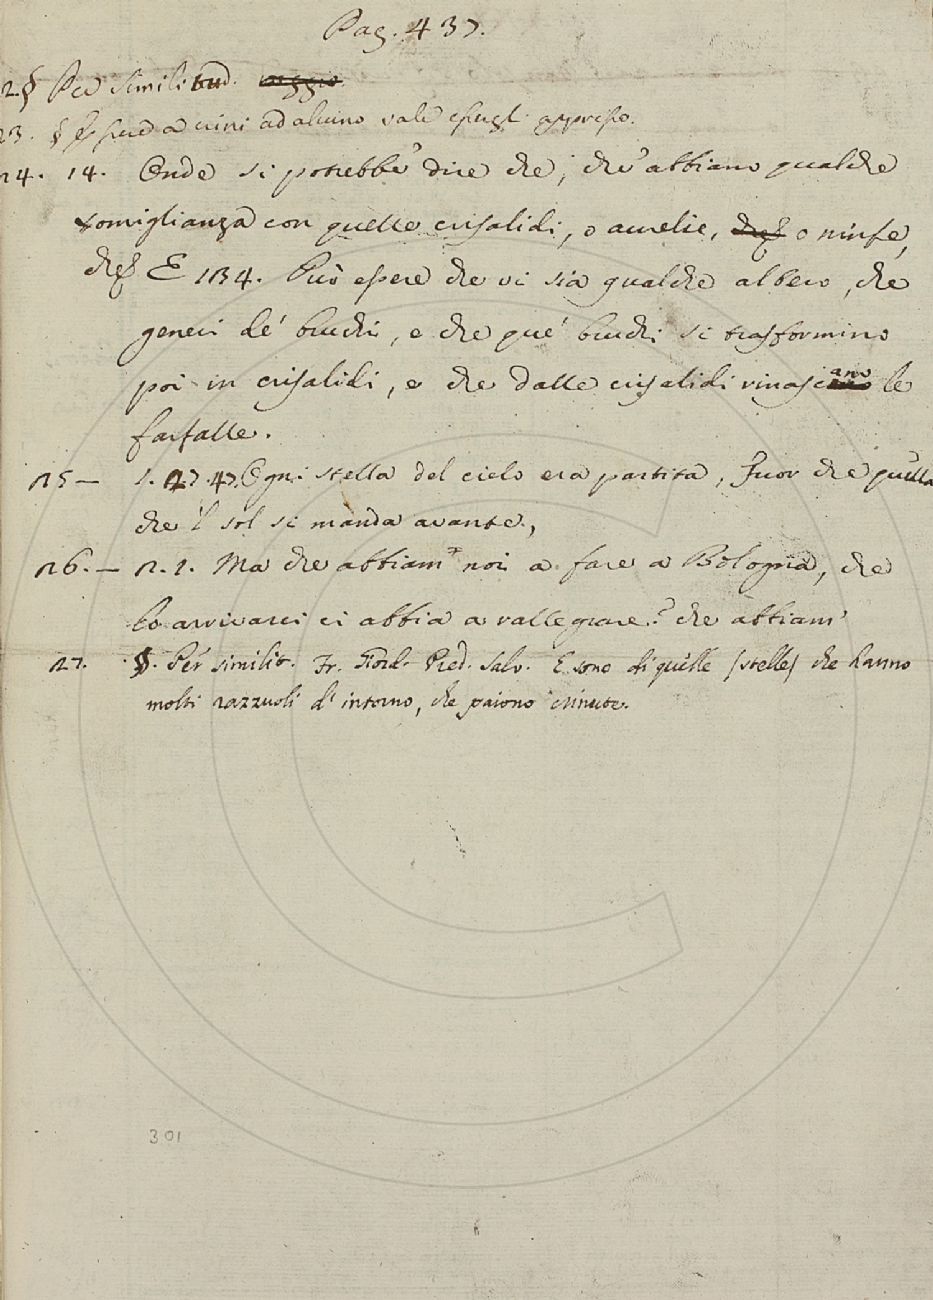 Pag. 437.
n2. § Per similitud.
n3. § Esser a crini ad alcuno vale essergl. appresso.
n4. 14. Onde si potrebbe dire che, che abbiano qualche
somiglianza con quelle crisalidi, o aurelie, o ninfe,
E 134. Può essere che vi sia qualche albero, che
generi de' bruchi, e che que' bruchi si trasformino
poi in crisalidi, e che dalle crisalidi rinascano le
farfalle.
n5 – 1. 27. 47. Ogni stella del cielo era partita, Fuor che quella
che 'l sol si manda avante,
n6. – n. 1. Ma che abbiam noi a fare a Bologna, che
lo arrivarci ci abbia a rallegrare? che abbiam'
n7. §. Per similit. Fr. Giord. Pred. Salv. E sono di quelle (stelle) che hanno
molti razzuoli d' intorno, che paiono crinute.
301